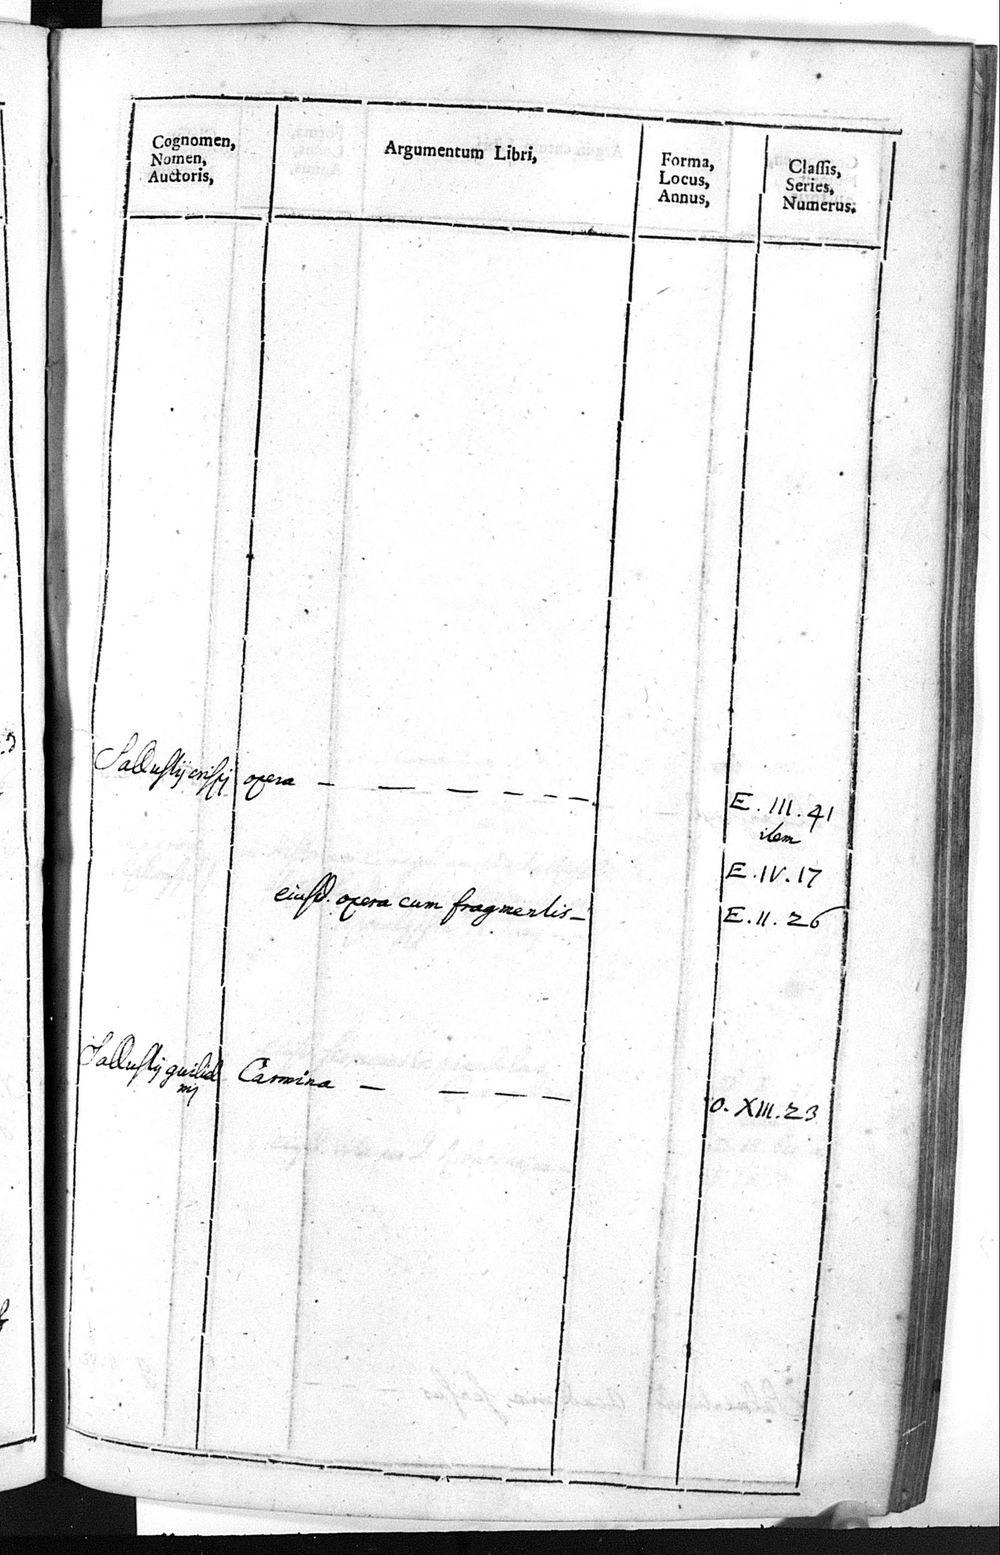 Cognomen,
Nomen,
Auctoris,
Argumentum Libri,
Forma,
Locus,
Annus,
Classis,
Series,
Numerus.
Sallustij crispj opera
E. III. 41
item
E. IV. 17
eiusd. opera cum fragmentis
E. II. 26
Sallustij Carmina
O. XIII. 23